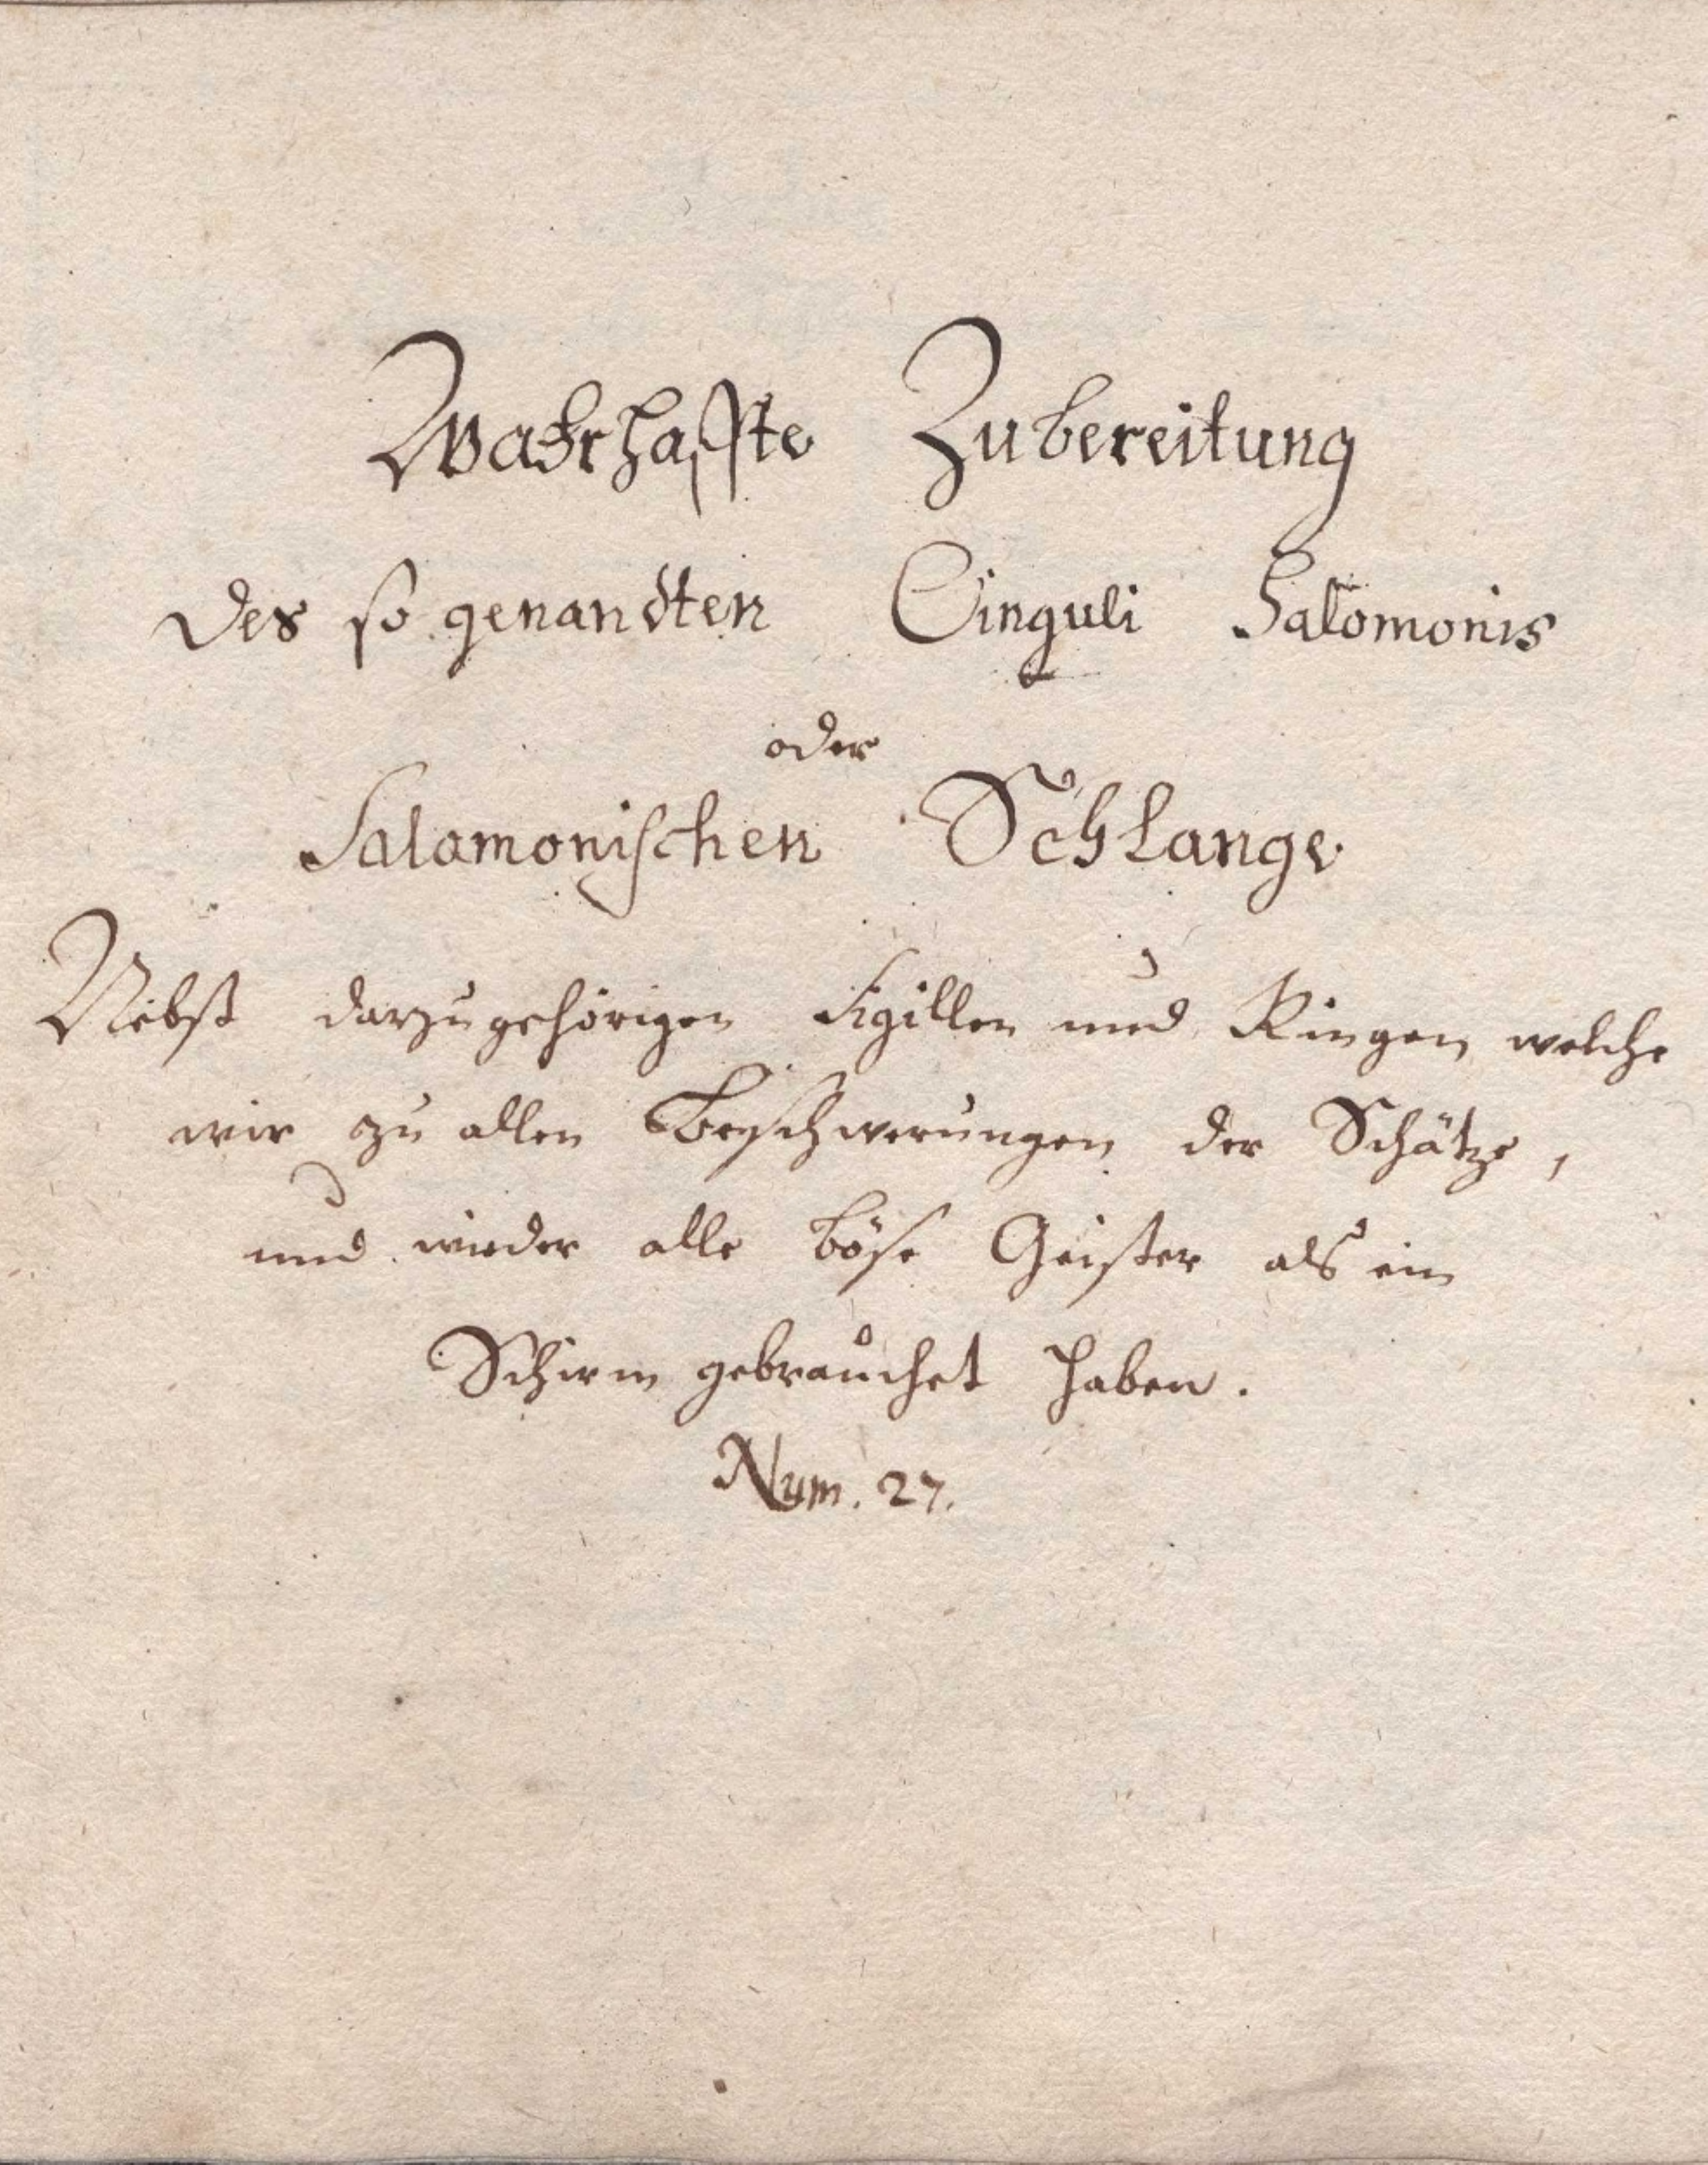 Wahrhaffte Zubereitung
des so genandten Cinguli Salomonis
oder
Salamonischen Schlange
Nebst darzugehörigen Sigillen und Ringen welche
wir zu allen Beschwerungen der Schätze,
und wieder alle böse Geister als ein
Schirm gebrauchet haben.
Num. 27.